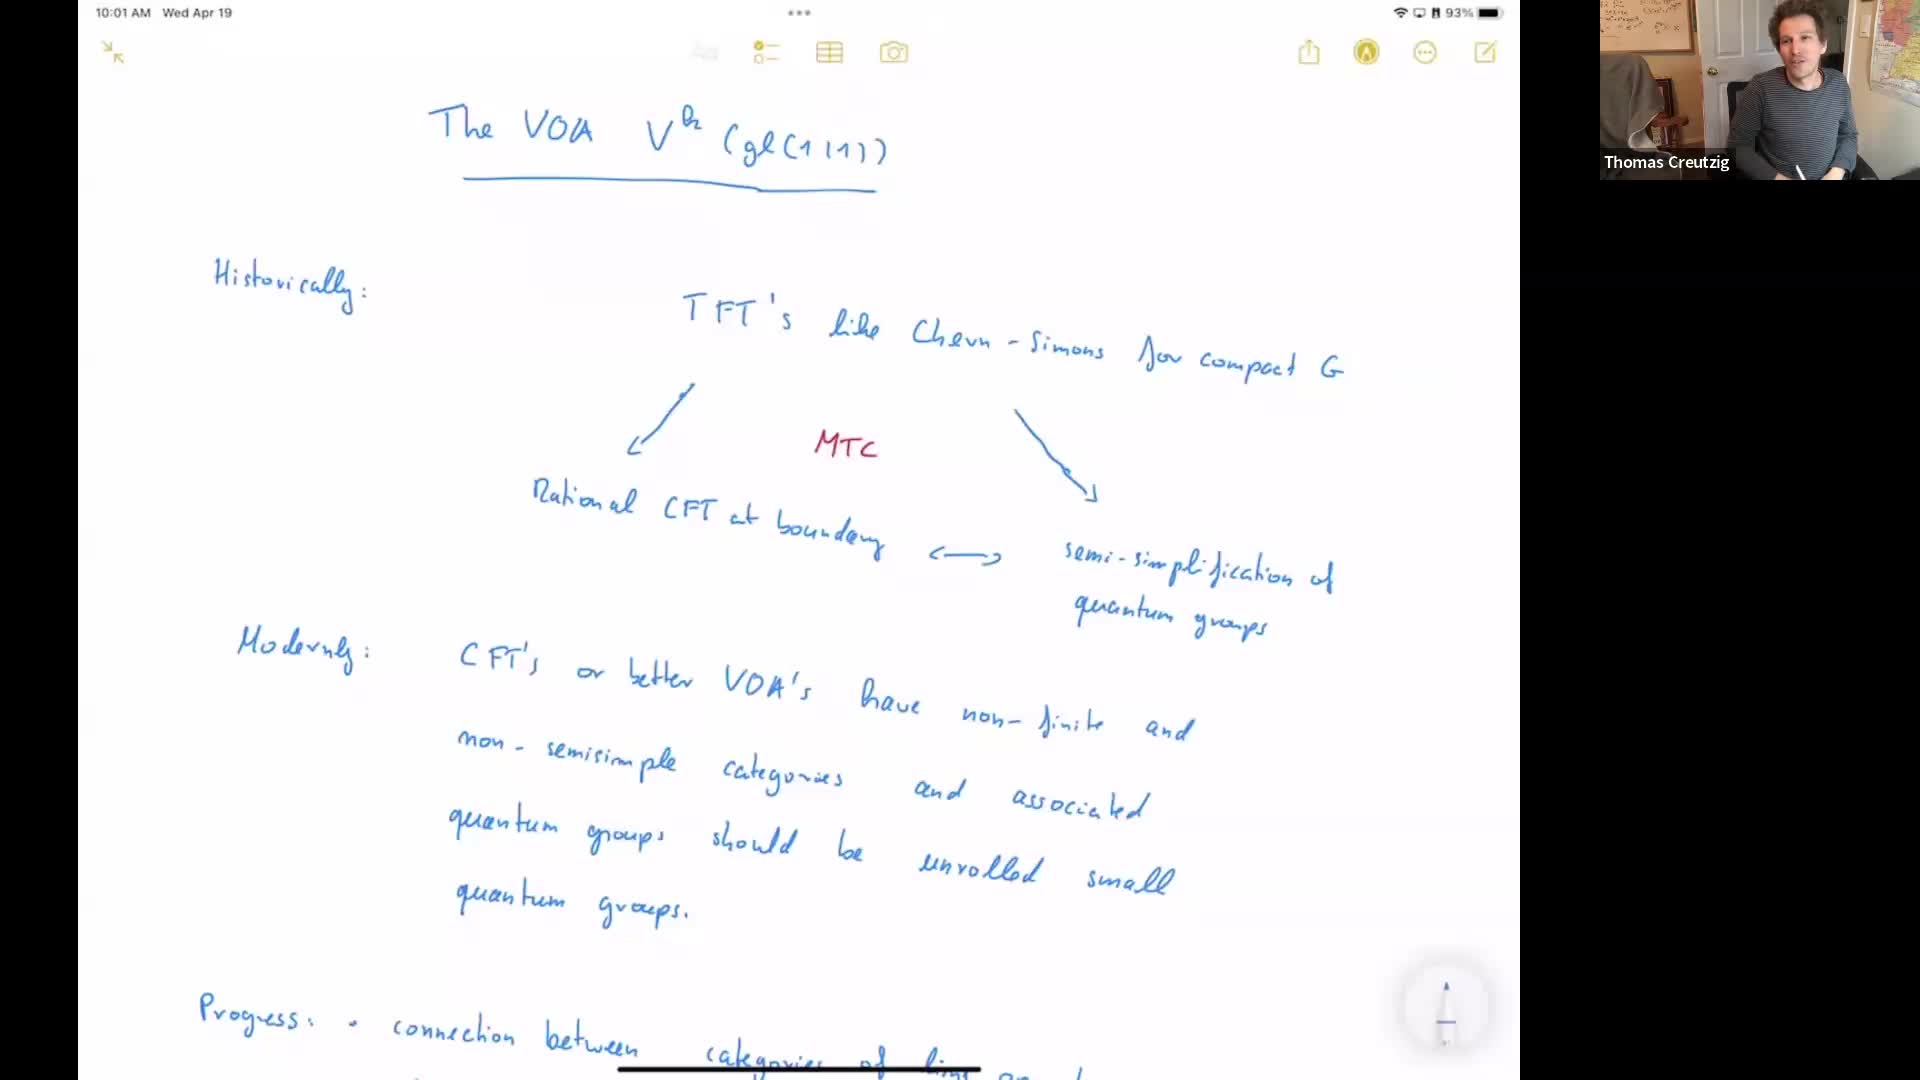 10:01 AM Wed Apr 19
93%
Thomas Creutzig
The VOA V^k (gl(1|1))
Historically:
TFT's like Chern-Simons for compact G
MTC
Rational CFT at boundary <-> semi-simplification of
quantum groups
Modernly: CFT's or better VOA's have non-finite and
non-semisimple categories and associated
quantum groups should be unrolled small
quantum groups.
Progress: • connection between categories of